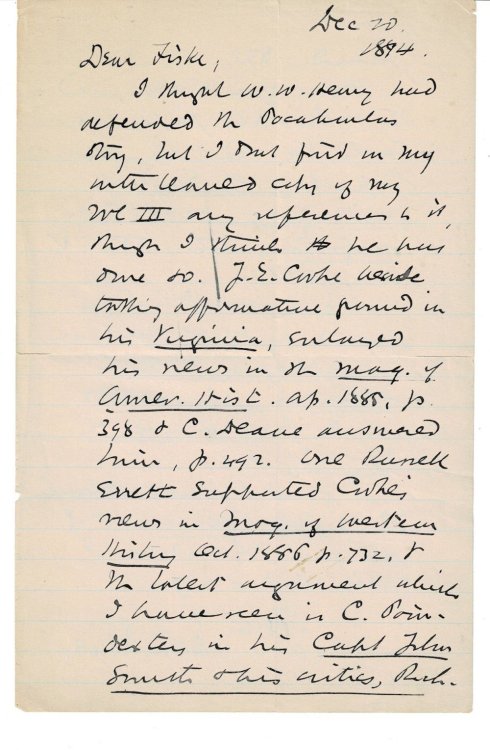 Dec 20.
1894.
Dear Fiske,
I thought W. W. Henry had
defended the Pocahontas
story, but I don't find in my
interleaved copy of my
Vol III any reference to it,
though I think he has
done so. J. E. Cooke beside
taking affirmative ground in
his Virginia, enlarged
his views in the Mag. of
Amer. Hist. ap. 1885, p.
398 & C. Deane answered
him, p. 492. One Russell
Errett supported Cooke's
views in Mag. of Western
History Oct. 1886 p. 732, &
the latest argument which
I have seen is C. Poin-
dexter's in his Capt John
Smith & his critics, Rich-